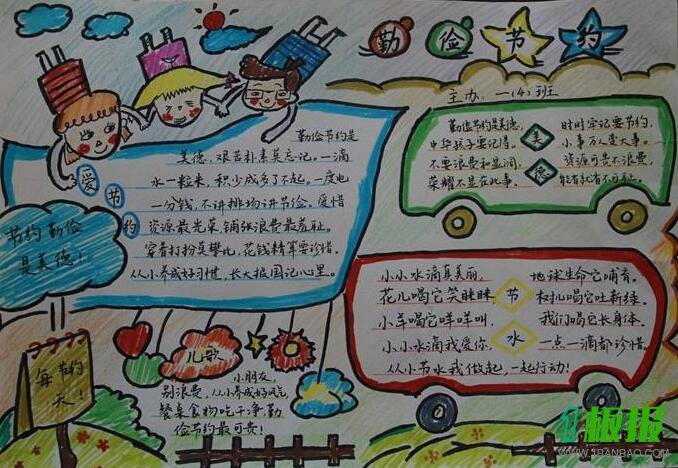 勤俭节约
主办:一(4)班
爱节约
勤俭节约是
美德,艰苦朴素莫忘记。一滴
水一粒米,积少成多了不起。一度电
一分钱,不讲排场讲节俭。爱惜
资源最光荣,铺张浪费最羞耻。
穿着打扮莫攀比,花钱精算要珍惜
从小养成好习惯,长大报国记心里。
节约 勤俭
是美德!
每节约
天!
美德
勤俭节约是美德,
中华孩子要记得。
不要浪费和显阔,
荣耀不是在此事。
时时牢记要节约,
小事万人是大事。
资源可贵不浪费,
节水
小小水滴真美丽,
花儿喝它笑眯眯
小羊喝它咩咩叫,
小小水滴我爱你,
从小节水我做起,一起行动!
地球生命它哺育。
树儿喝它吐新绿。
我们喝它长身体。
一点一滴都珍惜
儿歌
小朋友,
别浪费,从小养成好习气
餐桌食物吃干净,勤
俭节约最可贵!
板报
WWW.3PANBAO.COM